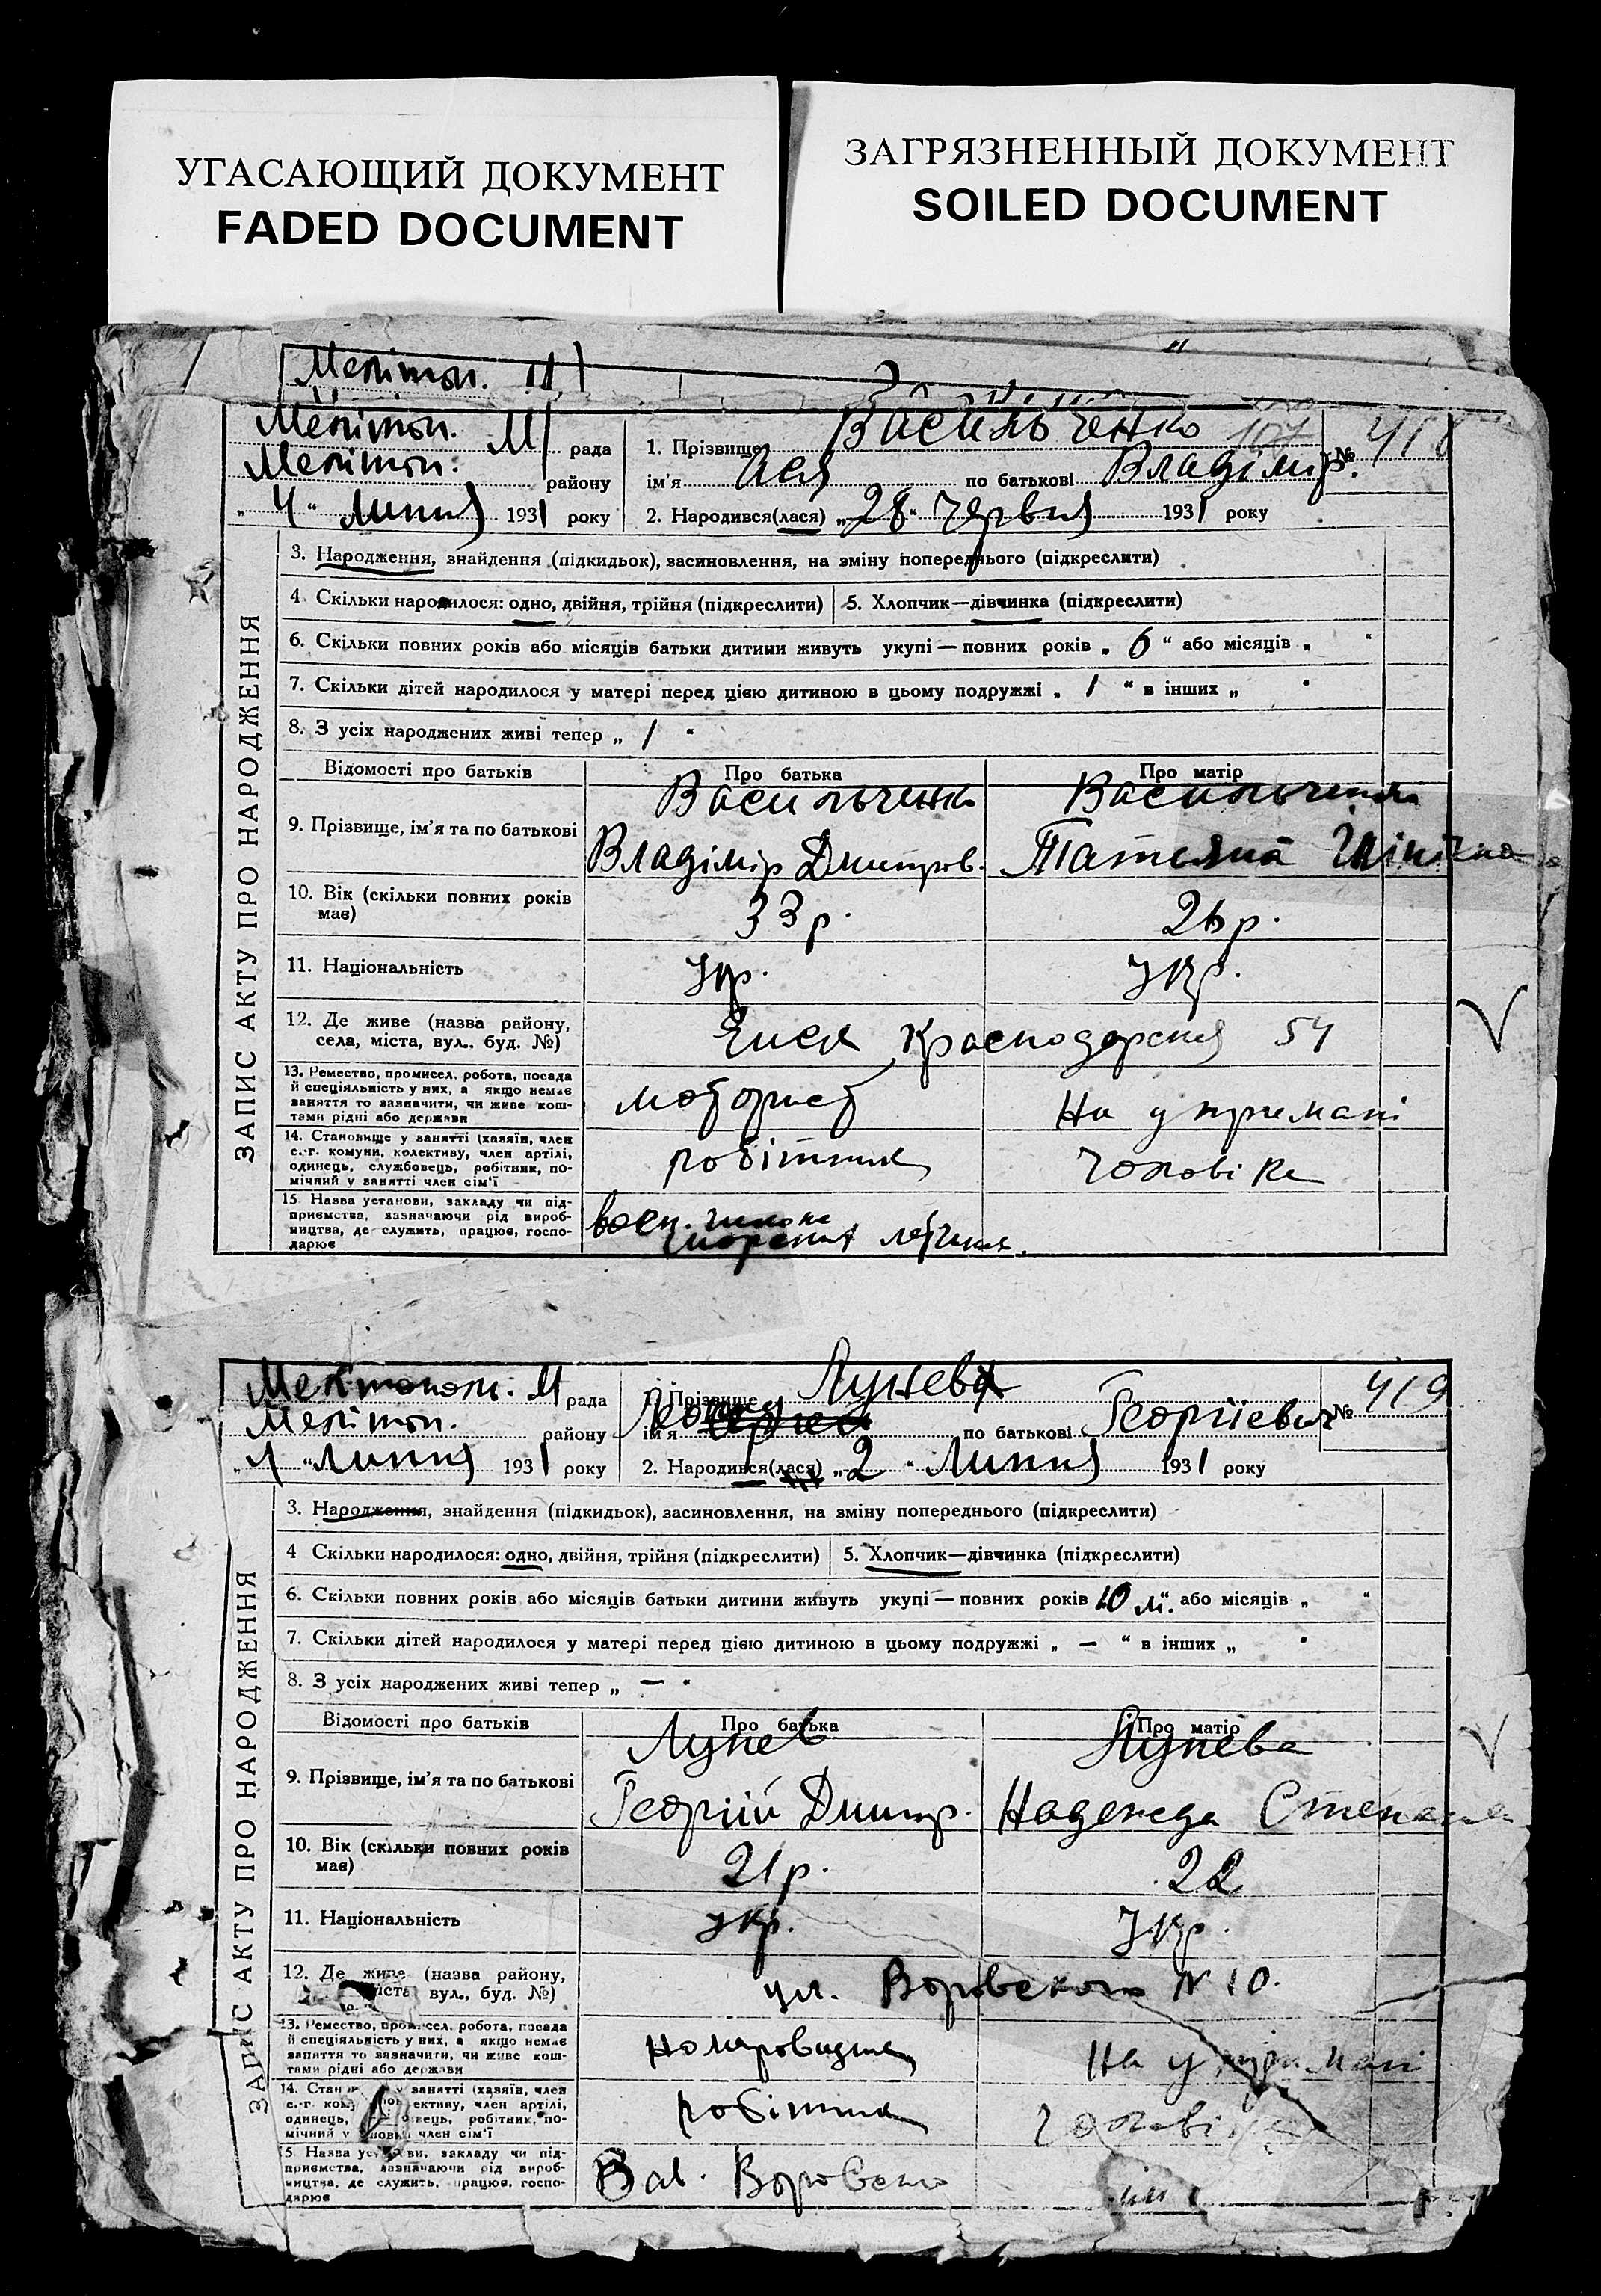 УГАСАЮЩИЙ ДОКУМЕНТ
FADED DOCUMENT
ЗАГРЯЗНЕННЫЙ ДОКУМЕНТ
SOILED DOCUMENT
Мелітоп. М
Мелітоп. М рада
Мелітоп. району
„4“ Липня 1931 року
1. Прізвище Васильченко 107
№ 418
ім'я Ася по батькові Владімір.
2. Народився(лася) „28“ Червня 1931 року
ЗАПИС АКТУ ПРО НАРОДЖЕННЯ
3. Народження, знайдення (підкидьок), засиновлення, на зміну попереднього (підкреслити)
4. Скільки народилося: одно, двійня, трійня (підкреслити) 5. Хлопчик—дівчинка (підкреслити)
6. Скільки повних років або місяців батьки дитини живуть укупі — повних років „6“ або місяців „ “
7. Скільки дітей народилося у матері перед цією дитиною в цьому подружжі „1“ в інших „ “
8. З усіх народжених живі тепер „1“
Відомості про батьків Про батька Про матір
9. Прізвище, ім'я та по батькові Васильченко Владімір Дмитров. Васильченко Татяна
10. Вік (скільки повних років має) 33 р. 26 р.
11. Національність Укр. Укр.
12. Де живе (назва району, села, міста, вул. буд. №) Єйск Краснодарския 54
13. Ремество, промисел, робота, посада й спеціяльність у них, а якщо немає заняття то зазначити, чи живе коштами рідні або держави моторист На утримані
14. Становище у занятті (хазяїн, член с.-г. комуни, колективу, член артілі, одинець, службовець, робітник, помічний у занятті член сім'ї робітник чоловіка
15. Назва установи, закладу чи підприємства, зазначаючи рід виробництва, де служить, працює, господарює воен. школа морских летчиков.
Мелітополь. М рада
Мелітоп. району
„4“ Липня 1931 року
1. Прізвище Лунєв
№ 419
ім'я по батькові Георгієвич
2. Народився(лася) „2“ Липня 1931 року
ЗАПИС АКТУ ПРО НАРОДЖЕННЯ
3. Народження, знайдення (підкидьок), засиновлення, на зміну попереднього (підкреслити)
4 Скільки народилося: одно, двійня, трійня (підкреслити) 5. Хлопчик—дівчинка (підкреслити)
6. Скільки повних років або місяців батьки дитини живуть укупі — повних років 10 м. або місяців „ “
7. Скільки дітей народилося у матері перед цією дитиною в цьому подружжі „—“ в інших „ “
8. З усіх народжених живі тепер „—“
Відомості про батьків Про батька Про матір
9. Прізвище, ім'я та по батькові Лунев Георгій Дмитр. Лунева Надежда
10. Вік (скільки повних років має) 21 р. 22
11. Національність Укр. Укр.
12. Де живе (назва району, міста, вул., буд. №) ул. Воровского № 10.
13. Ремество, промисел, робота, посада й спеціяльність у них, а якщо немає заняття то зазначити, чи живе коштами рідні або держави На утримані
14. занятті (хазяїн, член с.-г. член артілі, одинець, робітник, помічний у член сім'ї робітник чоловіка
15. Назва установи, закладу чи підприємства, зазначаючи рід виробництва, де служить, працює, господарює Зав. Воровского